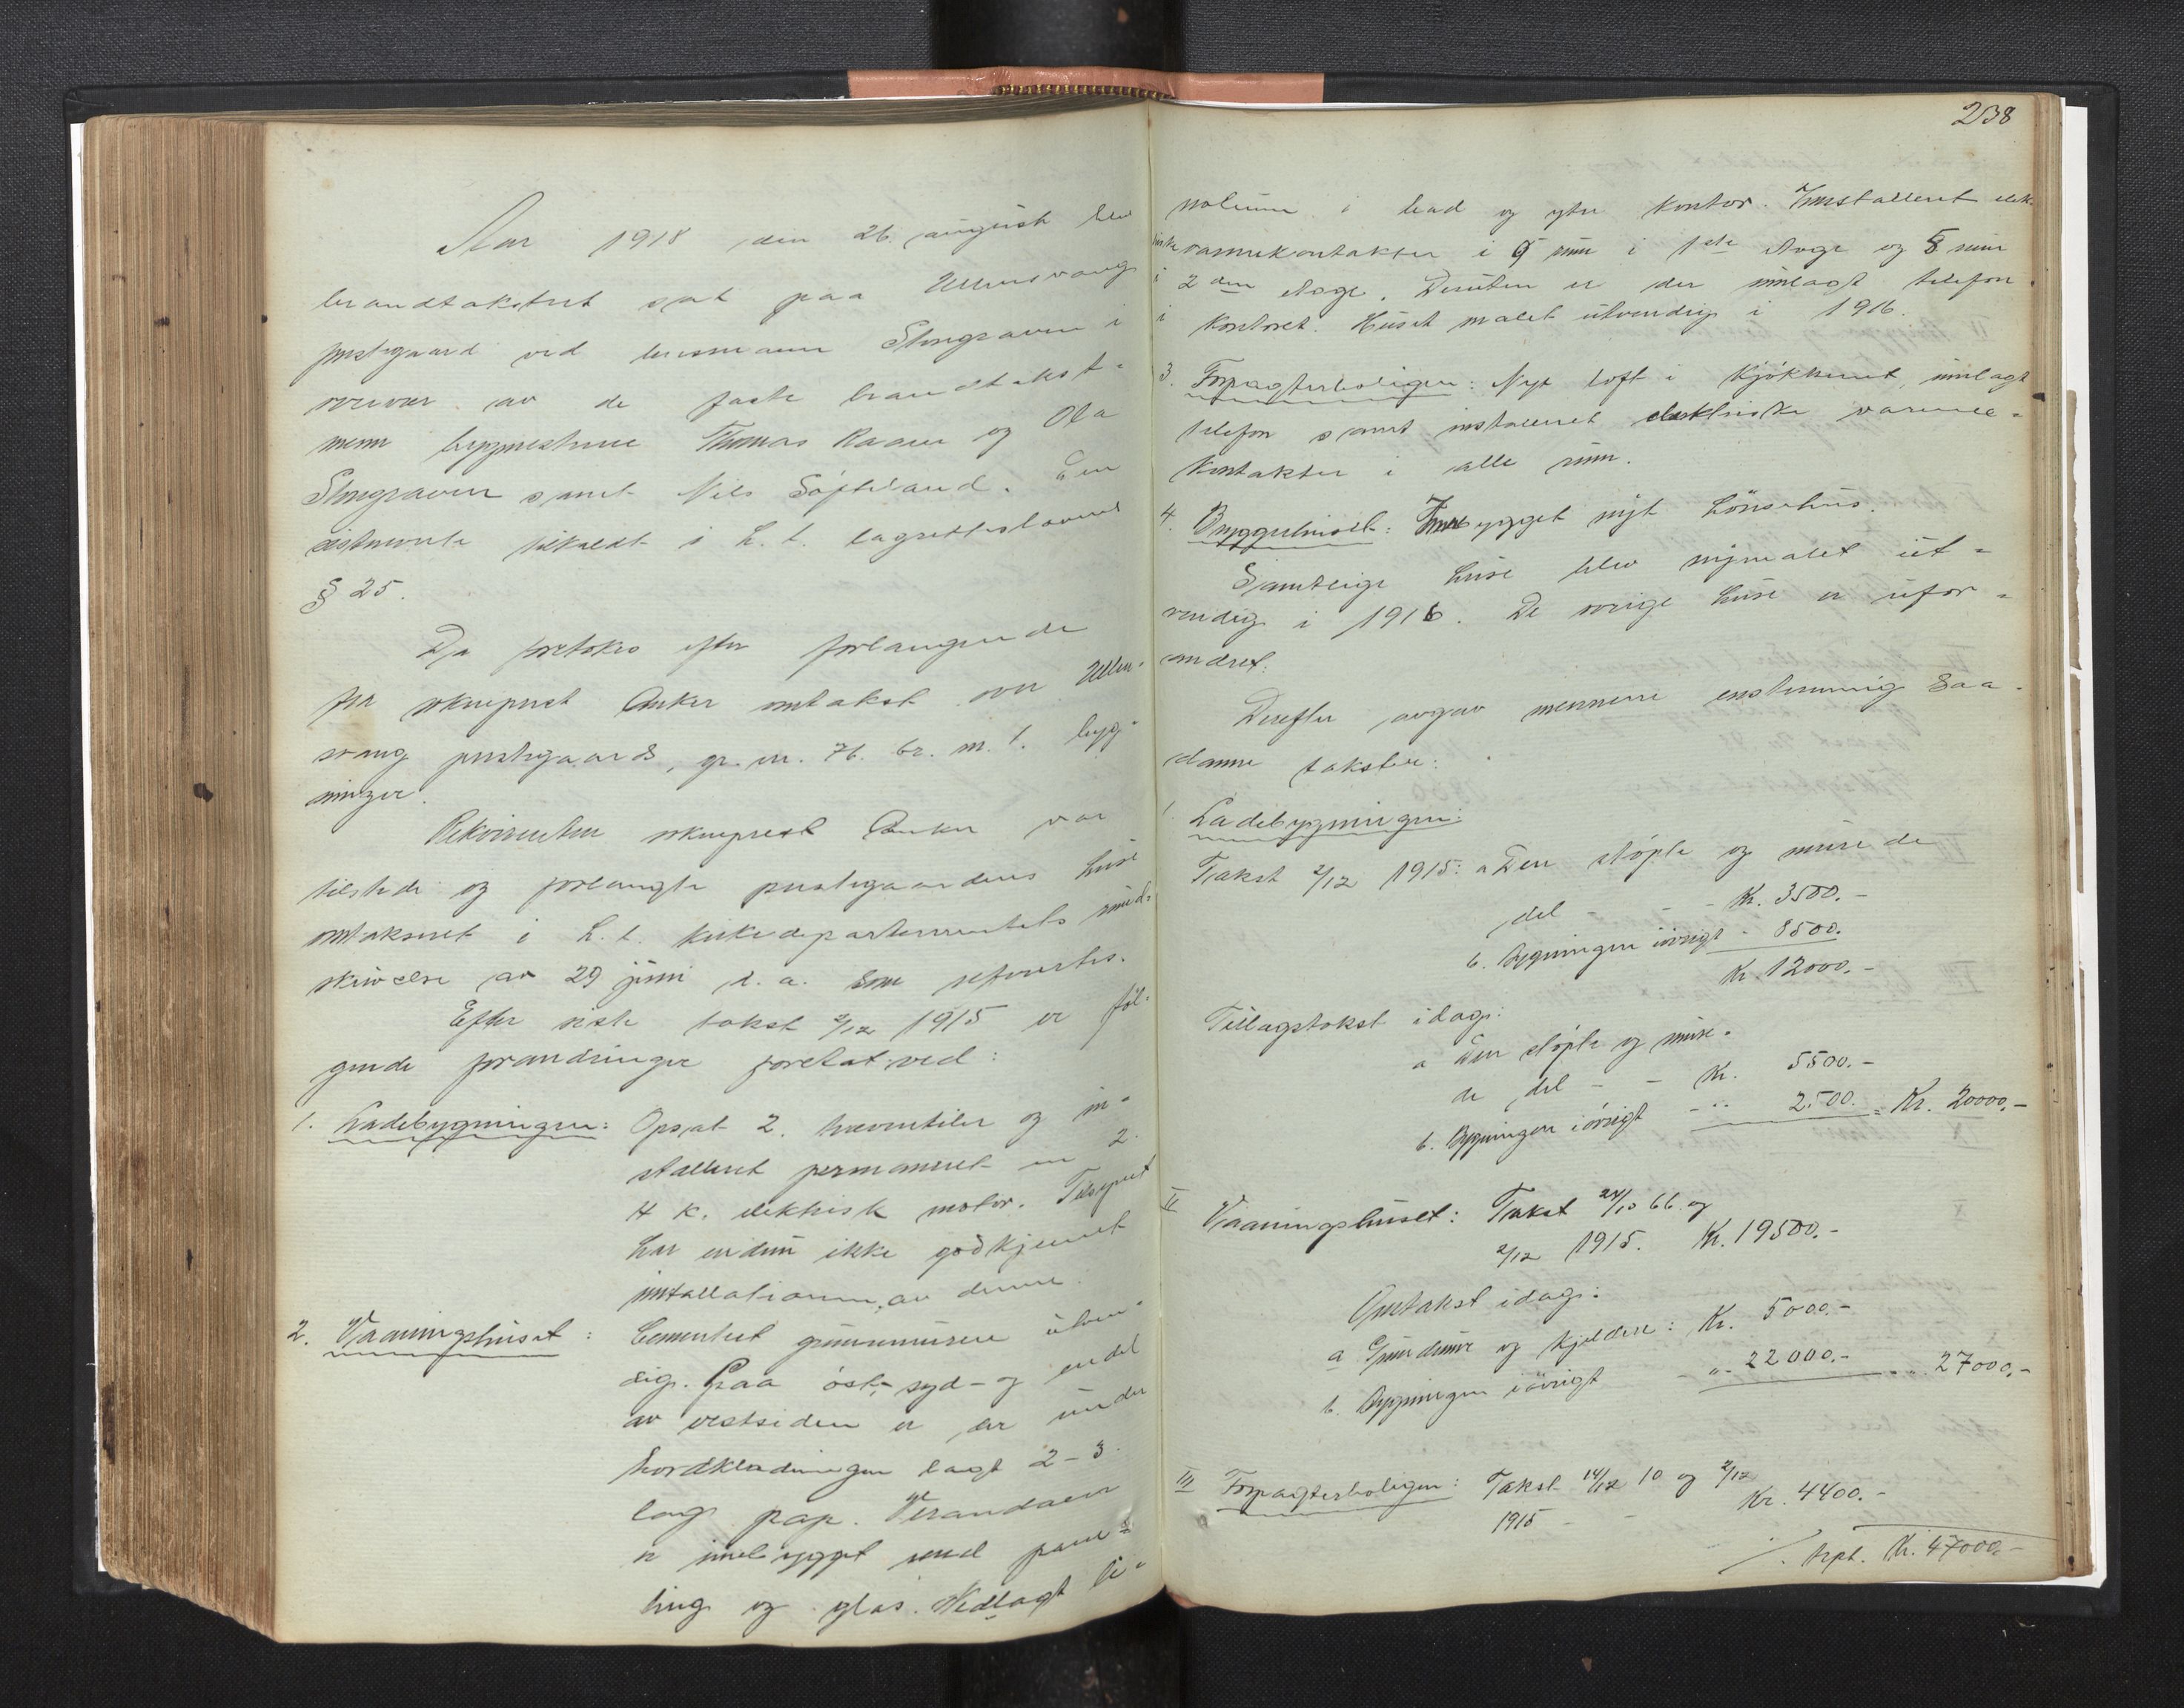 Aar 1918 den 26. august blev
brandtakstret sat paa Ullensvang
prestegaard ved lensmann Skograven i
nærvær av de faste brandtakst-
menn byggmestrene Thomas Raaen og Ola
Skograven samt Nils Softeland. Den
sistnevnte tilkaldt i h. t. lagrettesloven
§ 25.
Da foretokes efter forlangende
fra sokneprest Anker omtakst over Ullen-
svang prestegaards, gr. nr. 76. br. nr. 1. byg-
ninger.
Rekvirenten sokneprest Anker var
tilstede og forlangte prestegaardens huse
omtakseret i h. t. kirkedepartementets rund-
skrivelse av 29 juni d. a. som refereres.
Efter siste takst 2/12 1915 er føl-
gende forandringer foretat ved:
1. Ladebygningen: Opsat 2. høventiler og in-
stalleret permanent en 2.
H K. elektrisk motor. Tilsynet
har endnu ikke godkjennt
installationen av denne.
2. Vaaningshuset: Cementert grunnmuren utven-
dig. Paa öst-, syd- og endel
av vestsiden er der under
bordklædningen lagt 2-3
lags pap. Verandaen
er innebygget med pane-
ling og glas. Nedlagt li-
238
noleum i bad og ytre kontor. Innstalleret elek-
triske varmekontakter i 9 rum i 1ste etage og 8 rum
i 2den etage. Desuten er der innlagt telefon
i kontoret. Huset malet utvendig i 1916.
3. Forpagterboligen: Nyt loft i kjøkkenet, innlagt
telefon samt installeret elektriske varme-
kontakter i alle rum.
4. Bryggehuset: Innebygget nyt hönsehus.
Samtlige huse blev nymalet ut-
vendig i 1916. De øvrige huse er ufor-
andret.
Derefter avgav mennene enstemmig saa-
danne takster:
1. Ladebygningen:
Takst 2/12 1915: a Den støpte og murede
del - - Kr. 3500.-
b. Bygningen iøvrigt - 8500.
Kr. 12000.-
Tillægstakst idag:
a Den støpte og mure-
de del - - Kr. 5500.-
b. Bygningen iøvrigt - " 2500. = Kr. 20000.-
II Vaaningshuset: Takst 24/10 66 og
2/12 1915. Kr. 19500.-
Omtakst idag:
a Grundmur og kjeldere: Kr. 5000.-
b. Bygningen iøvrigt - " 22000.- " 27000.-
III Forpagterboligen: Takst 14/12 10 og 2/12
1915 - - Kr. 4400.-
./. trpt. Kr. 47000.-